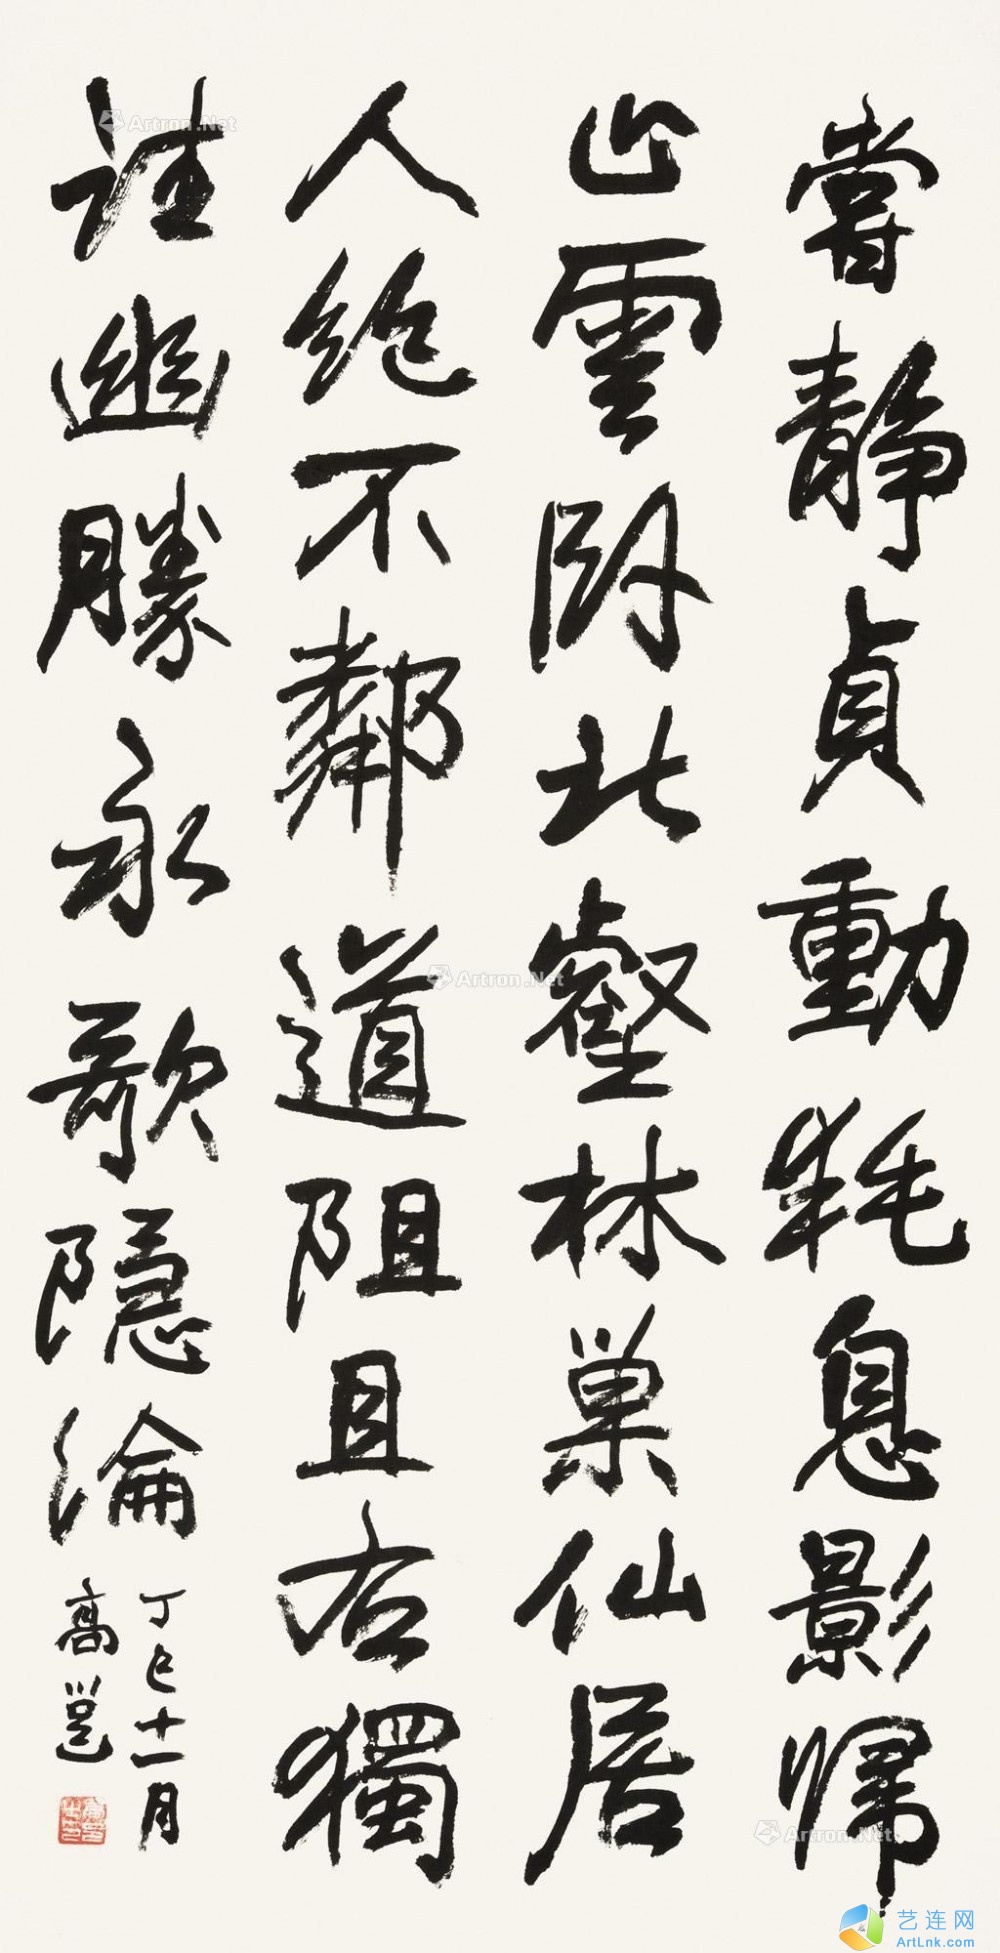 嘗靜貞動耗息影歸
山雲卧北壑林巢仙居
人絶不鄰道阻且右獨
幽勝永歌隱淪
丁巳十一月
高邕
Artron.Net
Artron.Net
Artron.Net
艺连网
ArtLnk.com